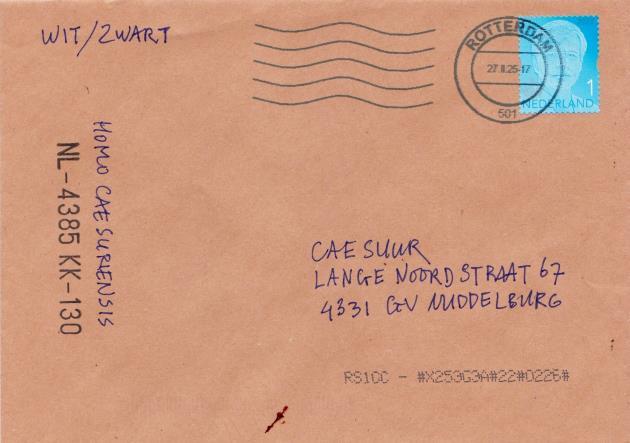 WIT/ZWART
ROTTERDAM
27.II.25-17
501
1
NEDERLAND
HOMO CAESURIENSIS
NL-4385 KK-130
CAESUUR
LANGE NOORDSTRAAT 67
4331 GV MIDDELBURG
RS1OC - #X253G3A#22#0226#